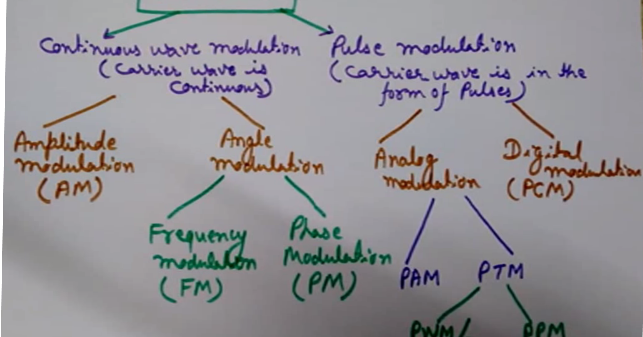 Continuous wave modulation
(Carrier wave is
Continuous)
Pulse modulation
(Carrier wave is in the
form of Pulses)
Amplitude
modulation
(AM)
Angle
modulation
Analog
modulation
Digital
modulation
(PCM)
Frequency
modulation
(FM)
Phase
Modulation
(PM)
PAM
PTM
PWM/
PPM